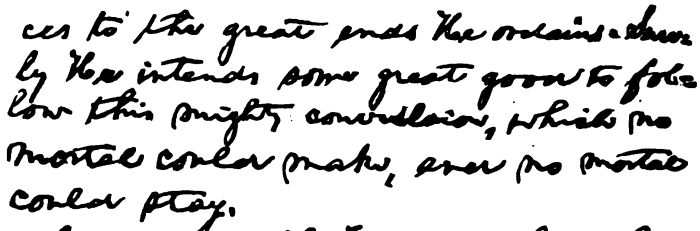 ces to the great ends He ordains. Sure=
ly He intends some great good to fol=
low this mighty convulsion, which no
mortal could make, and no mortal
could stay.